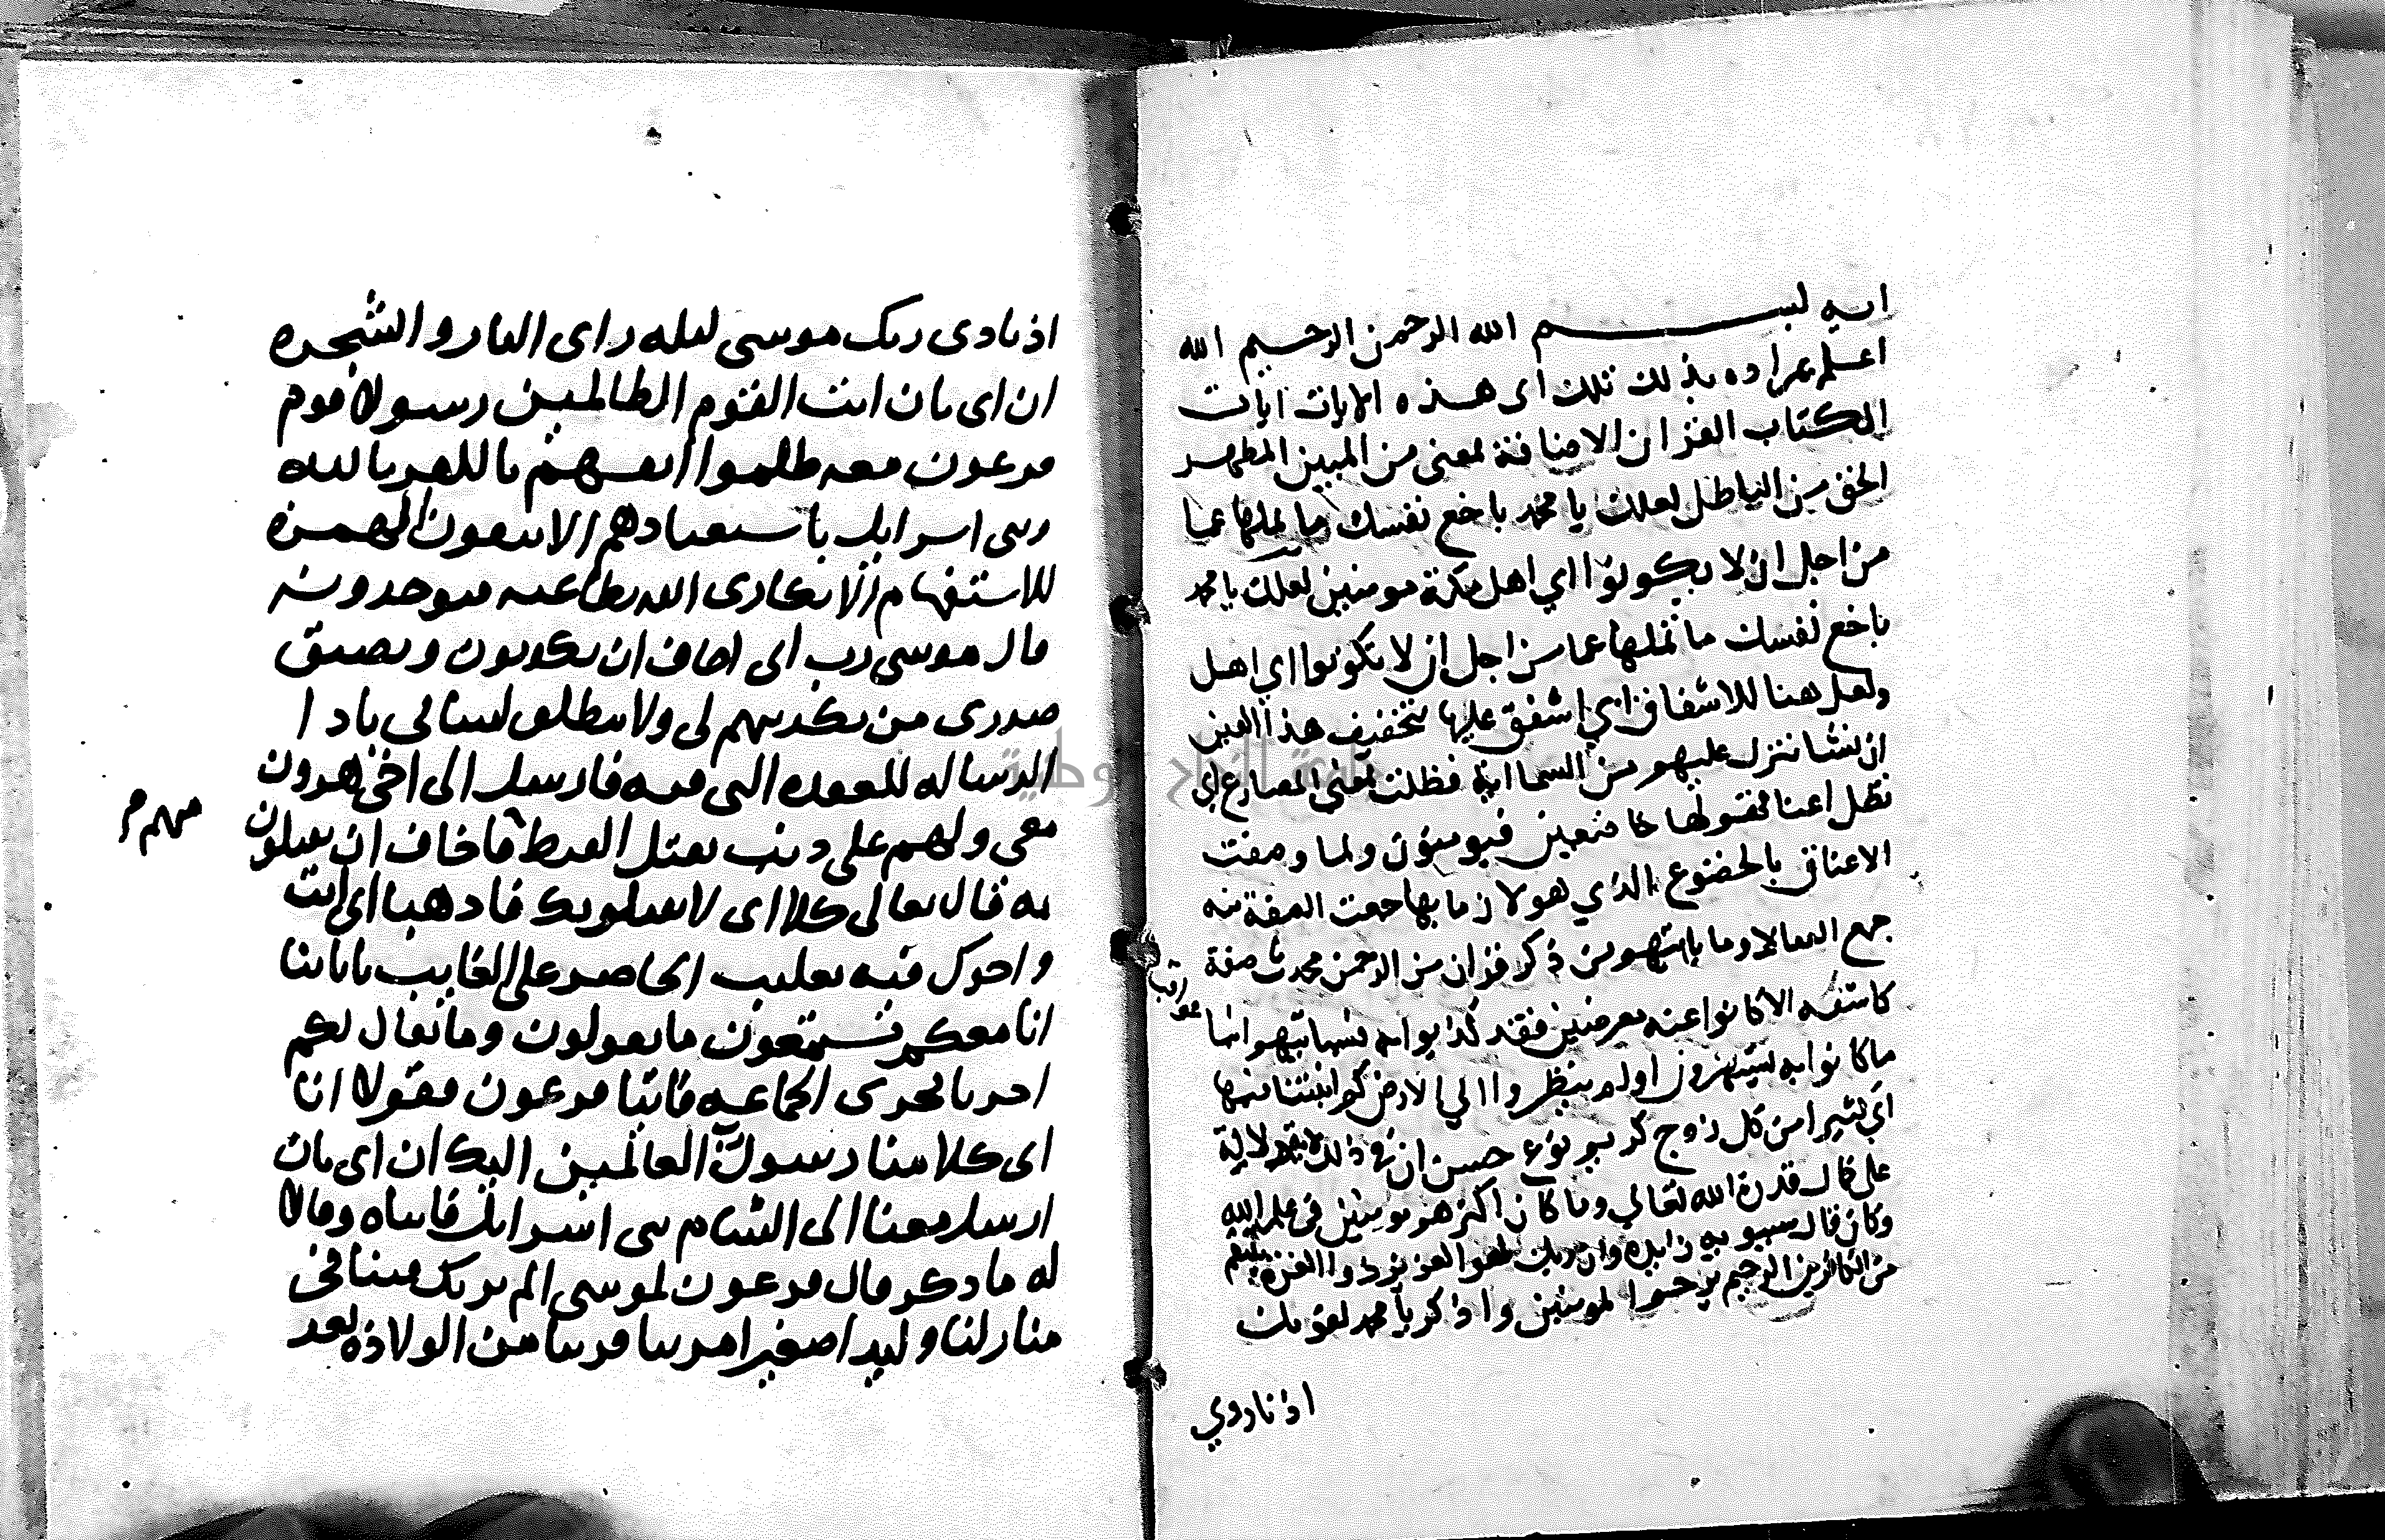 ايه بسم الله الرحمن الرحيم الله
اعلم بمراده بذلك تلك اى هذه الايات ايات
الكتاب القران الاضافة بمعنى من المبين المظهر
الحق من الباطل لعلك يا محمد باخع نفسك ما تملها عما
من اجل ان لا يكونوا اي اهل مكة مومنين لعلك يا محمد
باخع نفسك ما تملها عما من اجل ان لا يكونوا اي اهل
ولعل هنا للاشفاق اي اشفق عليها بتخفيف هذا الغم
ان نشا ننزل عليهم من السما اية فظلت بمعنى المضارع اي
تظل اعناقهم لها خاضعين فيومنون ولما وصفت
الاعناق بالخضوع الذي هو لاربابها جمعت الصفة منه
جمع العقلا وما ياتيهم من ذكر قران من الرحمن محدث صفة
كاشفه الا كانوا عنه معرضين فقد كذبوا به فسياتيهم انبا
عواقب
ما كانوا به يستهزون اولم ينظروا الي الارض كم انبتنا فيها
اي كثيرا من كل زوج كريم نوع حسن ان في ذلك لاية دلالة
على كمال قدرة الله تعالي وما كان اكثرهم مومنين في علم الله
وكان قال سيبويه زايدة وان ربك لهو العزيز ذو العزة ينتقم
من الكافرين الرحيم يرحم المومنين واذكر يا محمد لقومك
اذ نادوي
اذ نادى ربك موسى ليله راى النار والشجره
ان اى بان ايت القوم الظالمين رسولا قوم
فرعون معه ظلموا انفسهم بالكفر بالله
وبنى اسرايل باستعبادهم الا يتقون الهمزه
للاستفهام الانكارى الله بطاعته فيوحدونه
قال موسى رب انى اخاف ان يكذبون ويضيق
صدرى من تكذيبهم لى ولا ينطلق لسانى بادا
الرساله للعقده التى فيه فارسل الى اخى هرون
معى ولهم على ذنب بقتل القبطى فاخاف ان يقتلون
منهم
به قال تعالى كلا اى لا يقتلونك فاذهبا اى انت
واخوك فيه تغليب الحاضر على الغايب باياتنا
انا معكم مستمعون ما يقولون وما يقال لكم
اجريا مجرى الجماعه فاتيا فرعون فقولا انا
اى كلا منا رسول رب العالمين اليك ان اى بان
ارسل معنا الى الشام بنى اسرايل فاتياه وقالا
له ما ذكر قال فرعون لموسى الم نربك فينا فى
منازلنا وليدا صغيرا قريبا من الولاده بعد